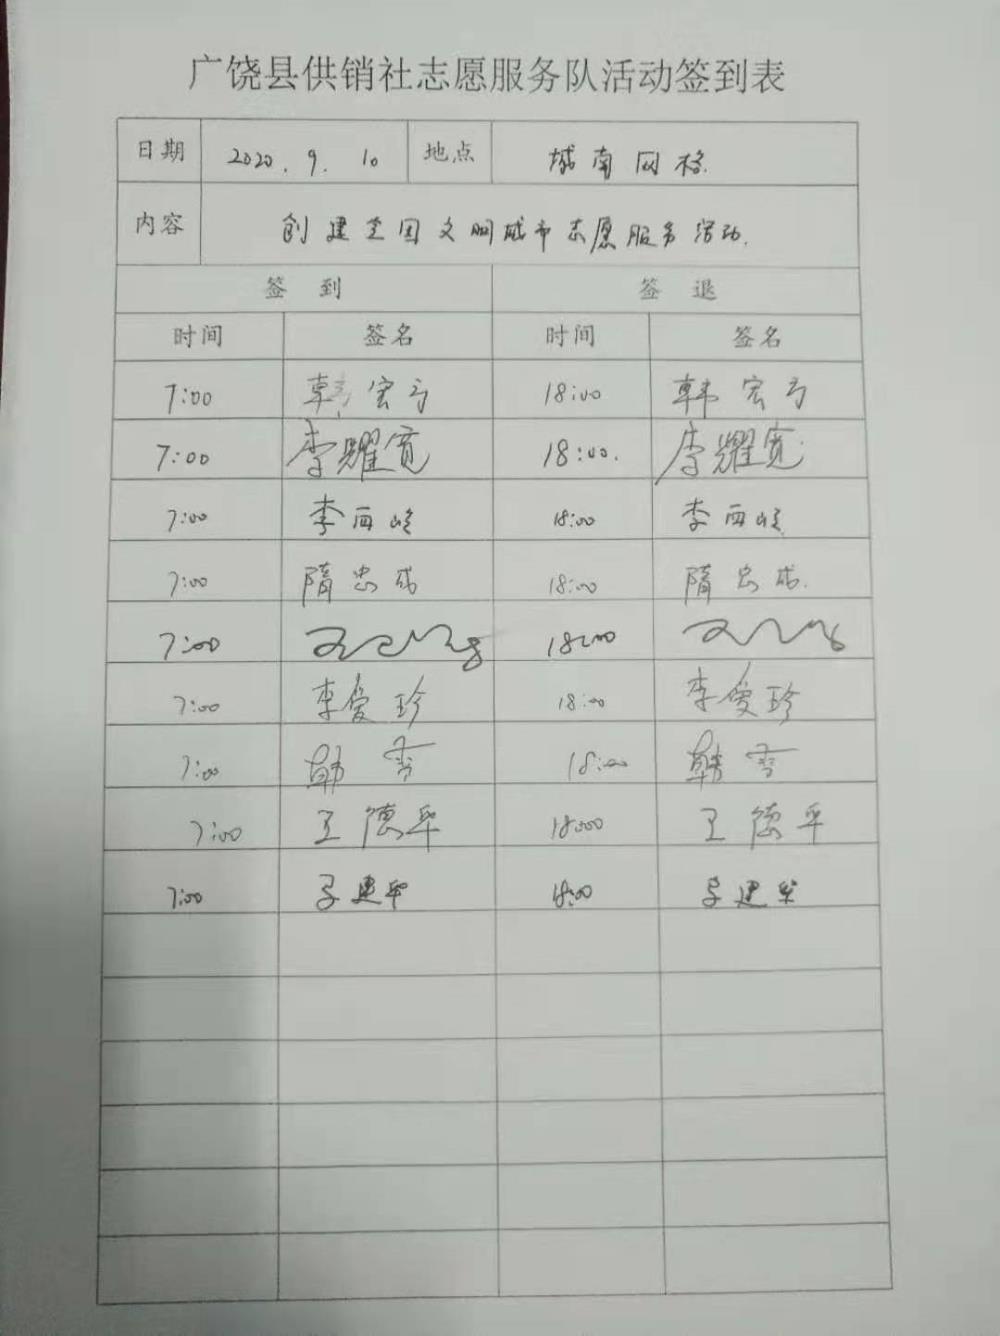 广饶县供销社志愿服务队活动签到表
日期 2020.9.10 地点 城南网格.
内容 创建全国文明城市志愿服务活动.
签到 签退
时间 签名 时间 签名
7:00 韩宏亏 18:00 韩宏亏
7:00 李耀宽 18:00. 李耀宽
7:00 李西岭 18:00 李西岭
7:00 隋忠成 18:00 隋忠成.
7:00 18:00
7:00 李爱珍 18:00 李爱珍
7:00 韩 18:00 韩
7:00 王德平 18:00 王德平
7:00 建平 18:00 建平